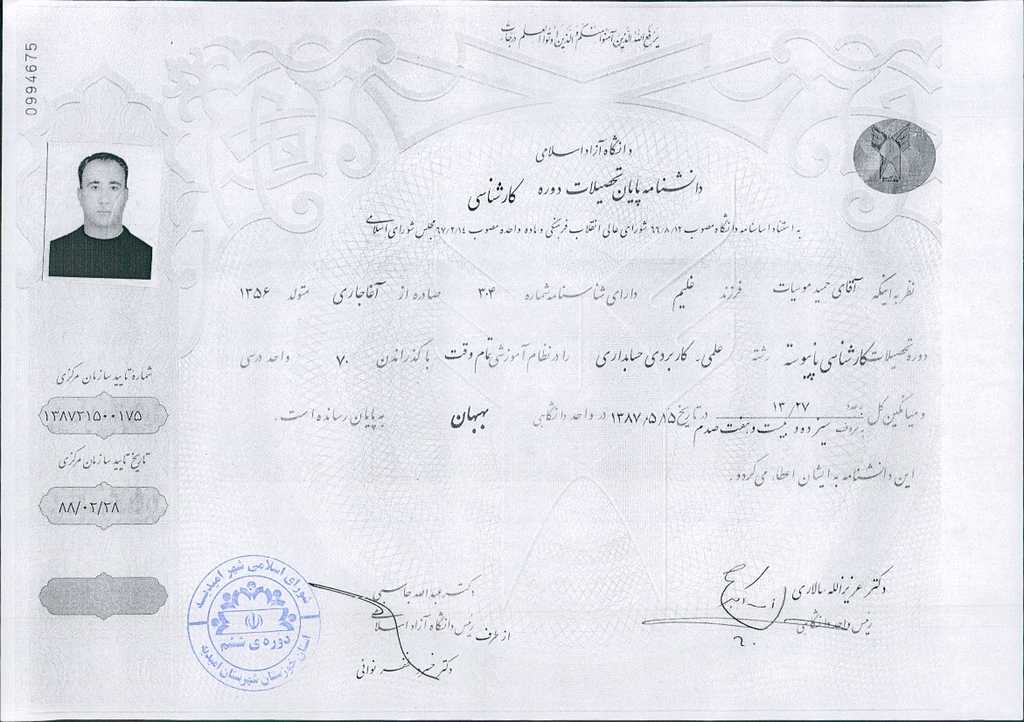 0994675
یرفع الله الذین آمنوا منکم و الذین اوتوا العلم درجات
دانشگاه آزاد اسلامی
دانشنامه پایان تحصیلات دوره کارشناسی
به استناد اساسنامه دانشگاه مصوب ۶۶/۸/۱۲ شورای عالی انقلاب فرهنگی و ماده واحده مصوب ۶۷/۲/۱۴ مجلس شورای اسلامی
نظر به اینکه آقای حمید موسیات فرزند غلیم دارای شناسنامه شماره ۳۰۴ صادره از آغاجاری متولد ۱۳۵۶
دوره تحصیلات کارشناسی ناپیوسته رشته علمی-کاربردی حسابداری را در نظام آموزشی تمام وقت با گذراندن ۷۰ واحد درسی
و میانگین کل به عدد ۱۳/۲۷ به حروف سیزده و بیست و هفت صدم در تاریخ ۱۳۸۷/۵/۵ در واحد دانشگاهی بهبهان به پایان رسانده است.
این دانشنامه به ایشان اعطاء می‌گردد.
شماره تایید سازمان مرکزی
۱۳۸۷۳۱۵۰۰۱۷۵
تاریخ تایید سازمان مرکزی
۸۸/۰۲/۲۸
دکتر عزیزالله سالاری
رئیس واحد دانشگاهی
دکتر عبدالله جاسبی
رئیس دانشگاه آزاد اسلامی
از طرف
دکتر
شورای اسلامی شهر امیدیه
دوره‌ی ششم
استان خوزستان شهرستان امیدیه